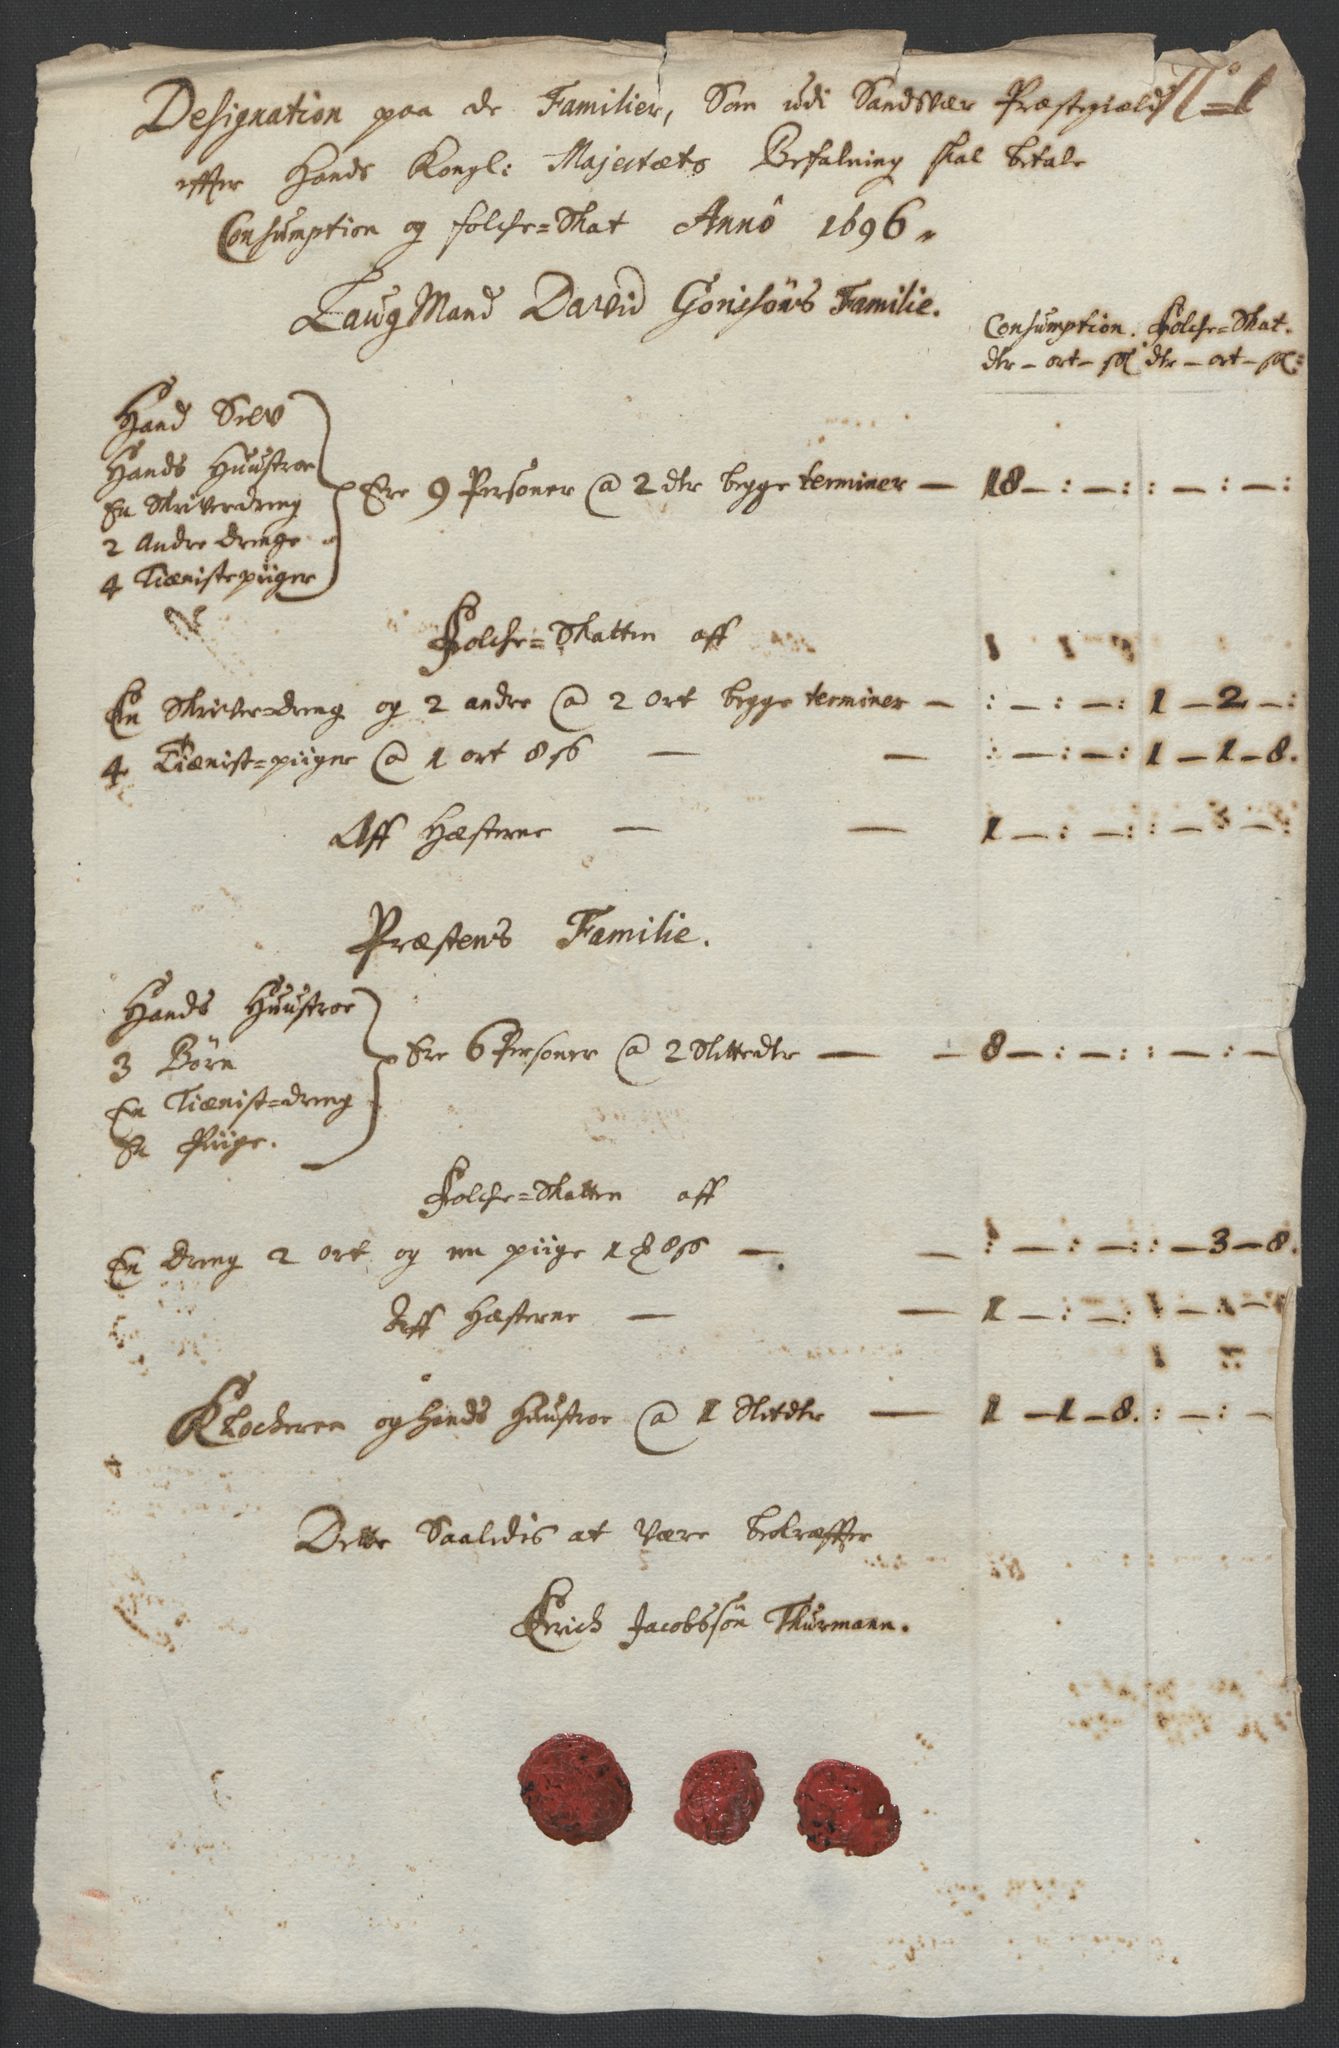 Designation paa de Familier, Som udi Sandsvær Præstegield N:o 1
effter Hands Kongl: Majestæts Befalning skal betale
Consumption og folche=Skat Annô 1696.
LaugMand David Gonsöns Familie.
Consumption. Folche=Skat.
dlr – ort – sk dlr – ort – sk:
Hand Selv
Hands Huustroe
En Skriverdreng
2 Andre Drenge
4 Tienistepiiger
Ere 9 Personer @ 2 dlr begge terminer — 18 – : – : : – : – :
Folche=Skatten aff
En Skriver=Dreng og 2 andre @ 2 ort begge terminer — : – : – : 1 – 2 – :
4 Tienist=piiger @ 1 ort 8 sk — — : – : – : 1 – 1 – 8.
Aff Hæsterne — — 1 – : – : : – : – :
Præstens Familie.
Hands Huustroe
3 Börn
En Tienist=dreng
En Piige.
Ere 6 Personer @ 2 Slettedlr — — 8 – : – : : – : –
Folche=Skatten aff
En Dreng 2 ort og en piige 1 ort 8 sk — — : – : – : : – 3 – 8.
Aff Hæsterne — — 1 – : – : : – : –
Klocheren og Hands Huustroe @ 1 Sletdlr — 1 – 1 – 8. : – : –
Dette Saaledis at være bekræffter
Erich Jacobssön Thurmann.